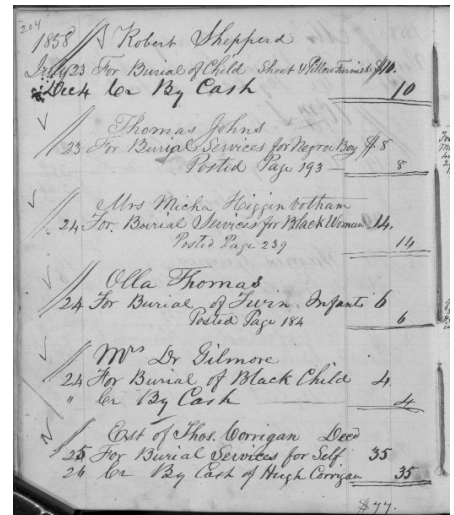 204
1858 Robert Shepperd
July 23 For Burial of Child Sheet & Pillow Furnished $10.
Dec 4 Cr By Cash 10
Thomas Johns
23 For Burial Services for Negroe Boy $8
Posted Page 193 8
Mrs Micha Higginbotham
24 For Burial Services for Black Woman 14.
Posted Page 239 14
Olla Thomas
24 For Burial of Twin Infants 6
Posted Page 184 6
Mrs Dr Gilmore
24 For Burial of Black Child 4.
" Cr By Cash 4
Est of Thos. Corrigan Deed
25 For Burial Services for Self 35
26 Cr By Cash of Hugh Corrigan 35
$77.